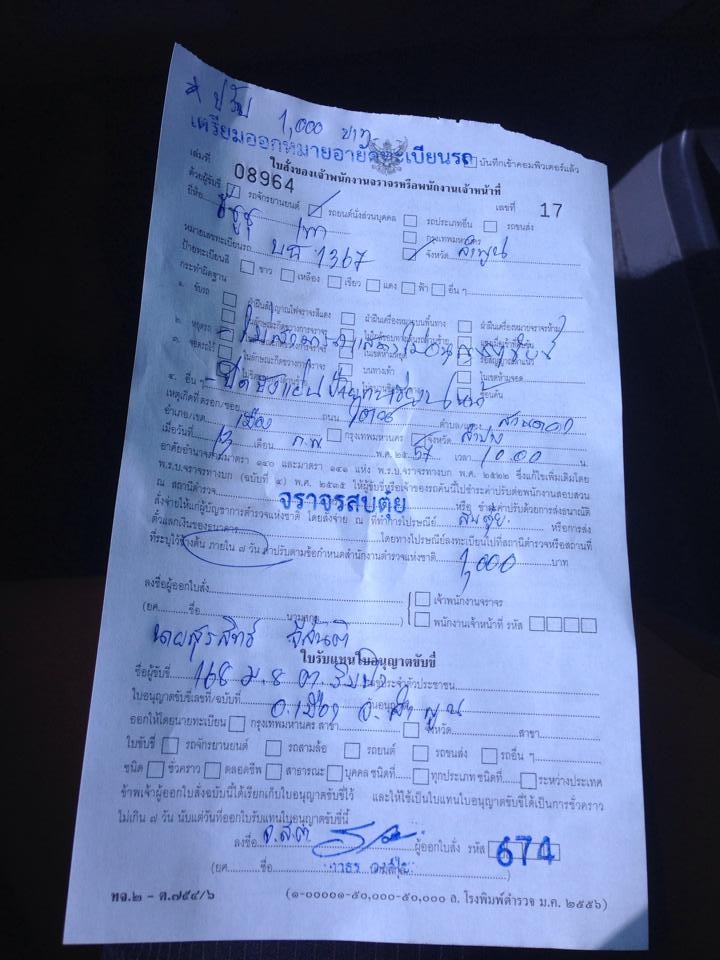 * ปรับ 1,000 บาท
เตรียมออกหมายอายัดทะเบียนรถ
บันทึกเข้าคอมพิวเตอร์แล้ว
ใบสั่งของเจ้าพนักงานจราจรหรือพนักงานเจ้าหน้าที่
เล่มที่ 08964 เลขที่ 17
ด้วยผู้ขับขี่ รถจักรยานยนต์ รถยนต์นั่งส่วนบุคคล รถประเภทอื่น รถขนส่ง
ยี่ห้อ อีซูซุ เทา กรุงเทพมหานคร
หมายเลขทะเบียนรถ บน 1367 จังหวัด ลำพูน
ป้ายทะเบียนสี ขาว เหลือง เขียว แดง ฟ้า อื่น ๆ
กระทำผิดฐาน
๑. ขับรถ ฝ่าฝืนสัญญาณไฟจราจรสีแดง ฝ่าฝืนเครื่องหมายบนพื้นทาง ฝ่าฝืนเครื่องหมายจราจรห้าม
๒. หยุดรถ ในลักษณะกีดขวางการจราจร
๓. จอดรถไว้ ในลักษณะกีดขวางการจราจร ในเขตห้าม
บนทางเท้า ในเขตห้ามจอด
ซ้อนคัน
๔. อื่น ๆ
เหตุเกิดที่ ตรอก/ซอย ถนน ตำบล/แขวง สวนดอก
อำเภอ/เขต เมือง กรุงเทพมหานคร จังหวัด ลำปาง
เมื่อวันที่ 13 เดือน ก.พ พ.ศ. ๒๕ 57 เวลา 10.00 น.
อาศัยอำนาจตามมาตรา ๑๔๐ และมาตรา ๑๔๑ แห่ง พ.ร.บ.จราจรทางบก พ.ศ. ๒๕๒๒ ซึ่งแก้ไขเพิ่มเติมโดย
พ.ร.บ.จราจรทางบก (ฉบับที่ ๔) พ.ศ. ๒๕๓๕ ให้ผู้ขับขี่หรือเจ้าของรถคันนี้ไปชำระค่าปรับต่อพนักงานสอบสวน
ณ สถานีตำรวจ จราจรสบตุ๋ย หรือ ชำระค่าปรับด้วยการส่งธนาณัติ
สั่งจ่ายให้แก่ผู้บัญชาการตำรวจแห่งชาติ โดยสั่งจ่าย ณ ที่ทำการไปรษณีย์ สบตุ๋ย หรือการส่ง
ตั๋วแลกเงินของธนาคาร โดยทางไปรษณีย์ลงทะเบียนไปที่สถานีตำรวจหรือสถานที่
ที่ระบุไว้ข้างต้น ภายใน ๗ วัน ค่าปรับตามข้อกำหนดสำนักงานตำรวจแห่งชาติ 1,000 บาท
ลงชื่อผู้ออกใบสั่ง เจ้าพนักงานจราจร
(ยศ ชื่อ นามสกุล) พนักงานเจ้าหน้าที่ รหัส
ใบรับแทนใบอนุญาตขับขี่
ชื่อผู้ขับขี่ 168 ม.8 ประจำตัวประชาชน
ใบอนุญาตขับขี่เลขที่/ฉบับที่ อ.เมือง จ.ลำพูน
ออกให้โดยนายทะเบียน กรุงเทพมหานคร สาขา จังหวัด สาขา
ใบขับขี่ รถจักรยานยนต์ รถสามล้อ รถยนต์ รถขนส่ง รถอื่น ๆ
ชนิด ชั่วคราว ตลอดชีพ สาธารณะ บุคคล ชนิดที่ ทุกประเภท ชนิดที่ ระหว่างประเทศ
ข้าพเจ้าผู้ออกใบสั่งฉบับนี้ได้เรียกเก็บใบอนุญาตขับขี่ไว้ และให้ใช้เป็นใบแทนใบอนุญาตขับขี่ได้เป็นการชั่วคราว
ไม่เกิน ๗ วัน นับแต่วันที่ออกใบรับแทนใบอนุญาตขับขี่นี้
ลงชื่อ จ.ส.ต. ผู้ออกใบสั่ง รหัส 674
(ยศ ชื่อ )
ทจ.๒ - ต.๗๕๔/๖ (๑-๐๐๐๐๑-๕๐,๐๐๐-๕๐,๐๐๐ ล. โรงพิมพ์ตำรวจ ม.ค. ๒๕๕๖)